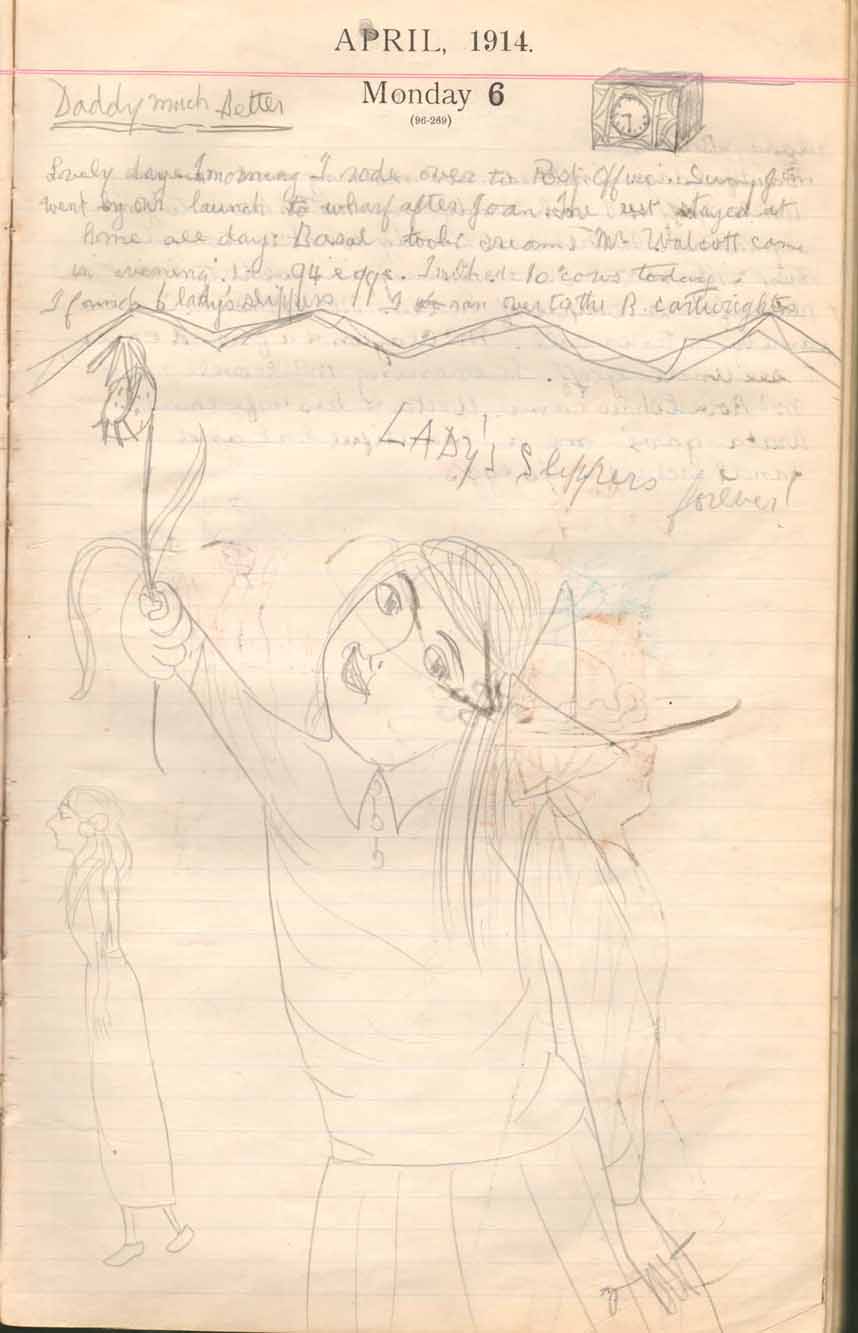 APRIL, 1914.
Monday 6
(96-269)
Daddy much Better
Lovely day. morning I rode over to Post Office.
went by our launch to wharf after Joan. The rest stayed at
home all day. Basil took cream. Mr Walcott came
in evening. 94 eggs. I milked 10 cows today
I found 6 lady's slippers. I ran over to the B. Cartwrights
LADY'S Slippers
forever!